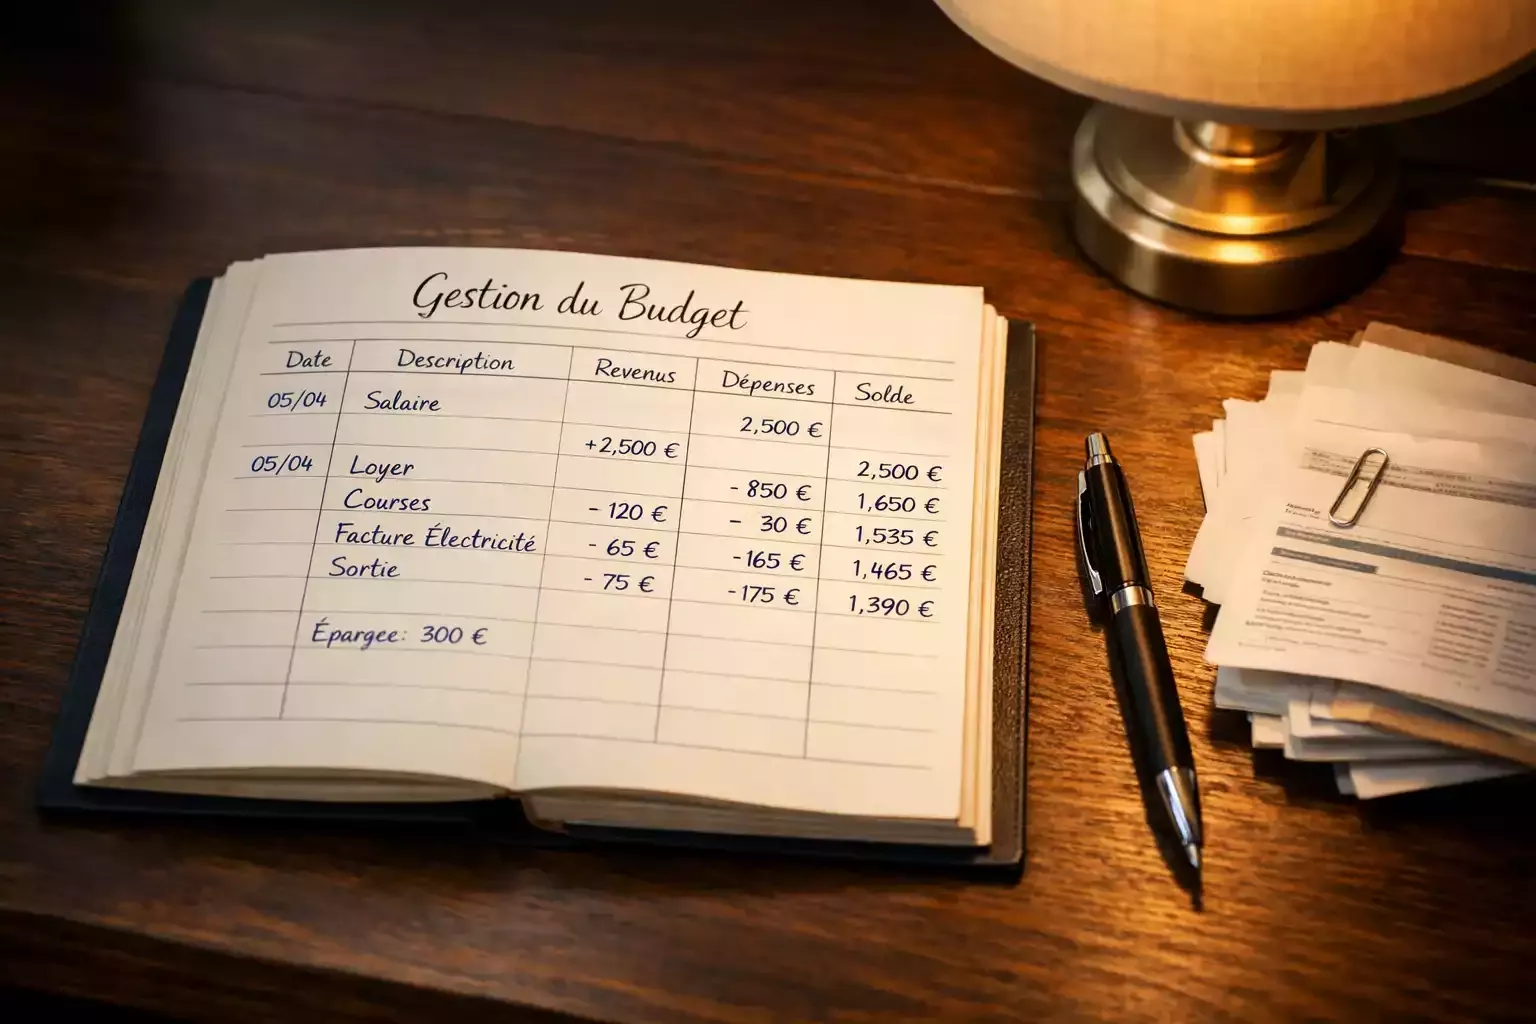 Gestion du Budget
Date Description Revenus Dépenses Solde
05/04 Salaire 2,500 €
+2,500 €
05/04 Loyer - 850 € 2,500 €
Courses - 120 € - 30 € 1,650 €
Facture Électricité - 65 € -165 € 1,535 €
Sortie - 75 € -175 € 1,465 €
1,390 €
Épargee: 300 €